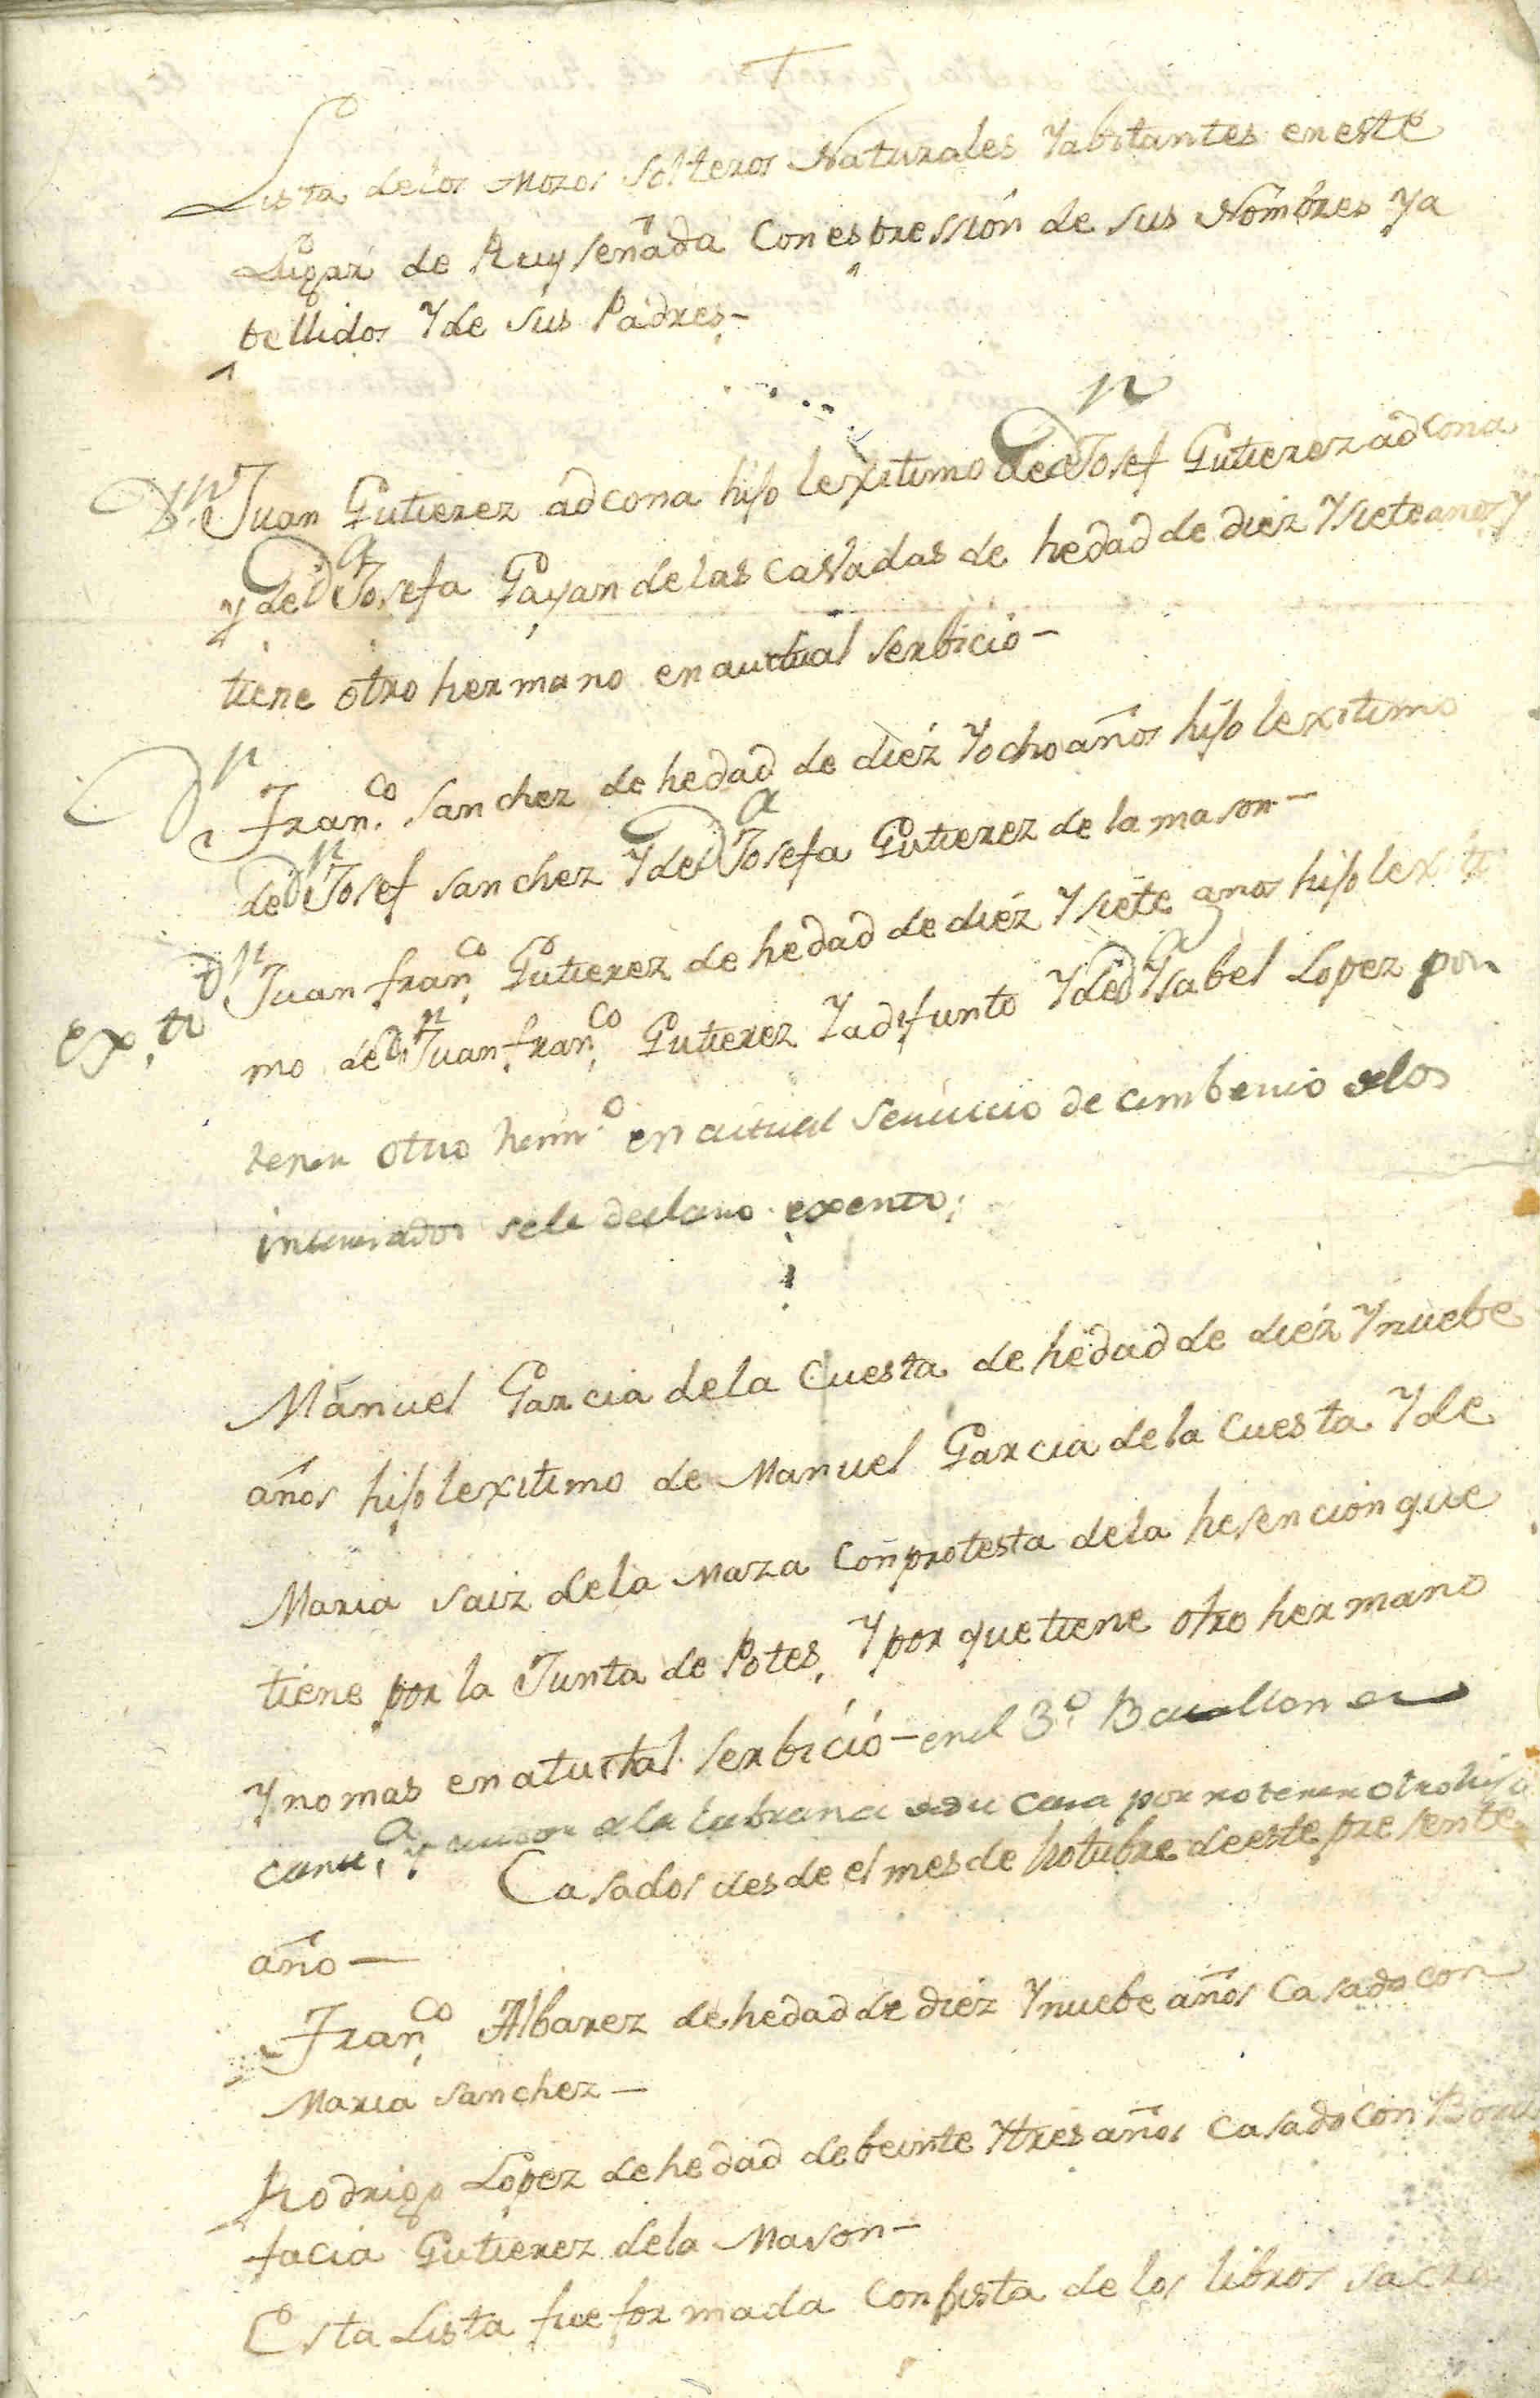 Lista delos Mozos Solteros Naturales Yabitantes en este
Lugar de Ruyseñada Con espression de sus Nombres Ya
pellidos Y de sus Padres-
Dn Juan Gutierez adcona hijo lexitimo de Dn Josef Gutierez adcona
y de Da Josefa Payan de las Cavadas de hedad de diez Y siete anos Y
tiene otro hermano en auctual serbicio-
Dn Franco. Sanchez de hedad de diez Y ocho años hijo lexitimo
de Dn Josef Sanchez Y de Da Josefa Gutierez de la mason-
Dn Juan franco. Gutierez de hedad de diez Y siete anos hijo lexiti
ex,to
mo de Dn Juan franco. Gutierez Ya difunto Y de Da Ysabel Lopez por
tener otro hermo. en actual seruicio de combenio de los
interesados se le declaro exento;
Manuel Garcia dela Cuesta de hedad de diez Y nuebe
años hijo lexitimo de Manuel Garcia dela Cuesta Y de
Maria Saiz dela Maza Con protesta dela hesencion que
tiene por la Junta de Potes, Y por que tiene otro hermano
Y no mas en atuctal serbicio- en el 3o. Batallon de
Canta. y de la labranza de su Casa por no tener otro hijo
Casados desde el mes de hotubre de este presente
año-
Franco. Albarez de hedad de diez Y nuebe años Casado con
Maria Sanchez-
Rodrigo Lopez de hedad de beinte Y tres años Casado con Boni
facia Gutierez dela Mason-
Esta Lista fue formada Con bista de los libros sacra